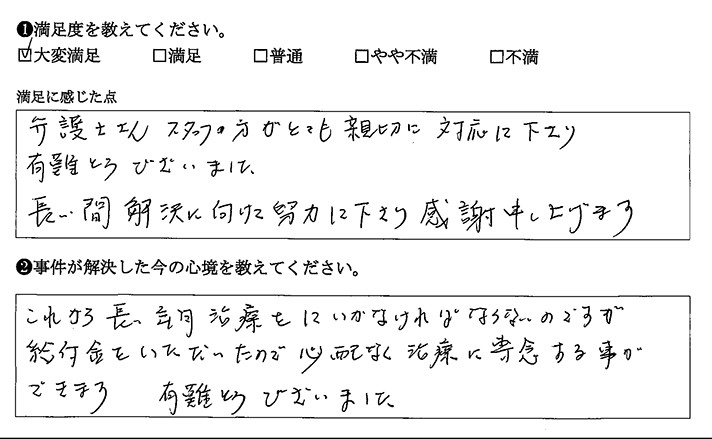 ❶満足度を教えてください。
☑大変満足 □満足 □普通 □やや不満 □不満
満足に感じた点
弁護士さん スタッフの方がとても親切に対応に下さり
有難とうございました
長い間解決に向けて努力に下さり感謝申し上げます
❷事件が解決した今の心境を教えてください。
これから長い 治療を にいかなければならないのですが
給付金をいただいたので心配なく治療に専念する事が
できます 有難とうございました